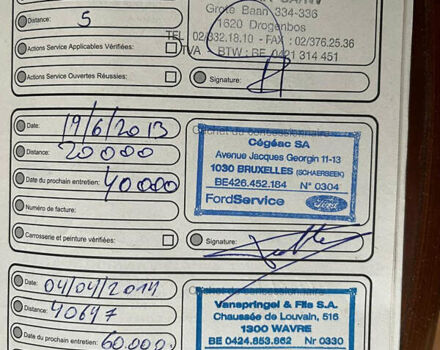 Distance: 5
Grote Baan 334-336
1620 Drogenbos
Actions Service Applicables Vérifiées:
TEL 02/332.18.10 - FAX : 02/376.25.36
TVA BTW : BE 0421 314 451
Actions Service Ouvertes Réussies:
Signature:
Date: 19/6/2013
Cachet du concessionnaire
Distance: 20000
Cégéac SA
Avenue Jacques Georgin 11-13
1030 BRUXELLES (SCHAERBEEK)
BE426.452.184 N° 0304
FordService Ford
Date du prochain entretien: 40000
Numéro de facture:
Carrosserie et peinture vérifiées:
Signature:
Date: 04/04/2014
Cachet du concessionnaire
Distance: 40647
Vanspringel & Fils S.A.
Chaussée de Louvain, 516
1300 WAVRE
BE 0424.853.862 Nr 0330
Date du prochain entretien: 60.000